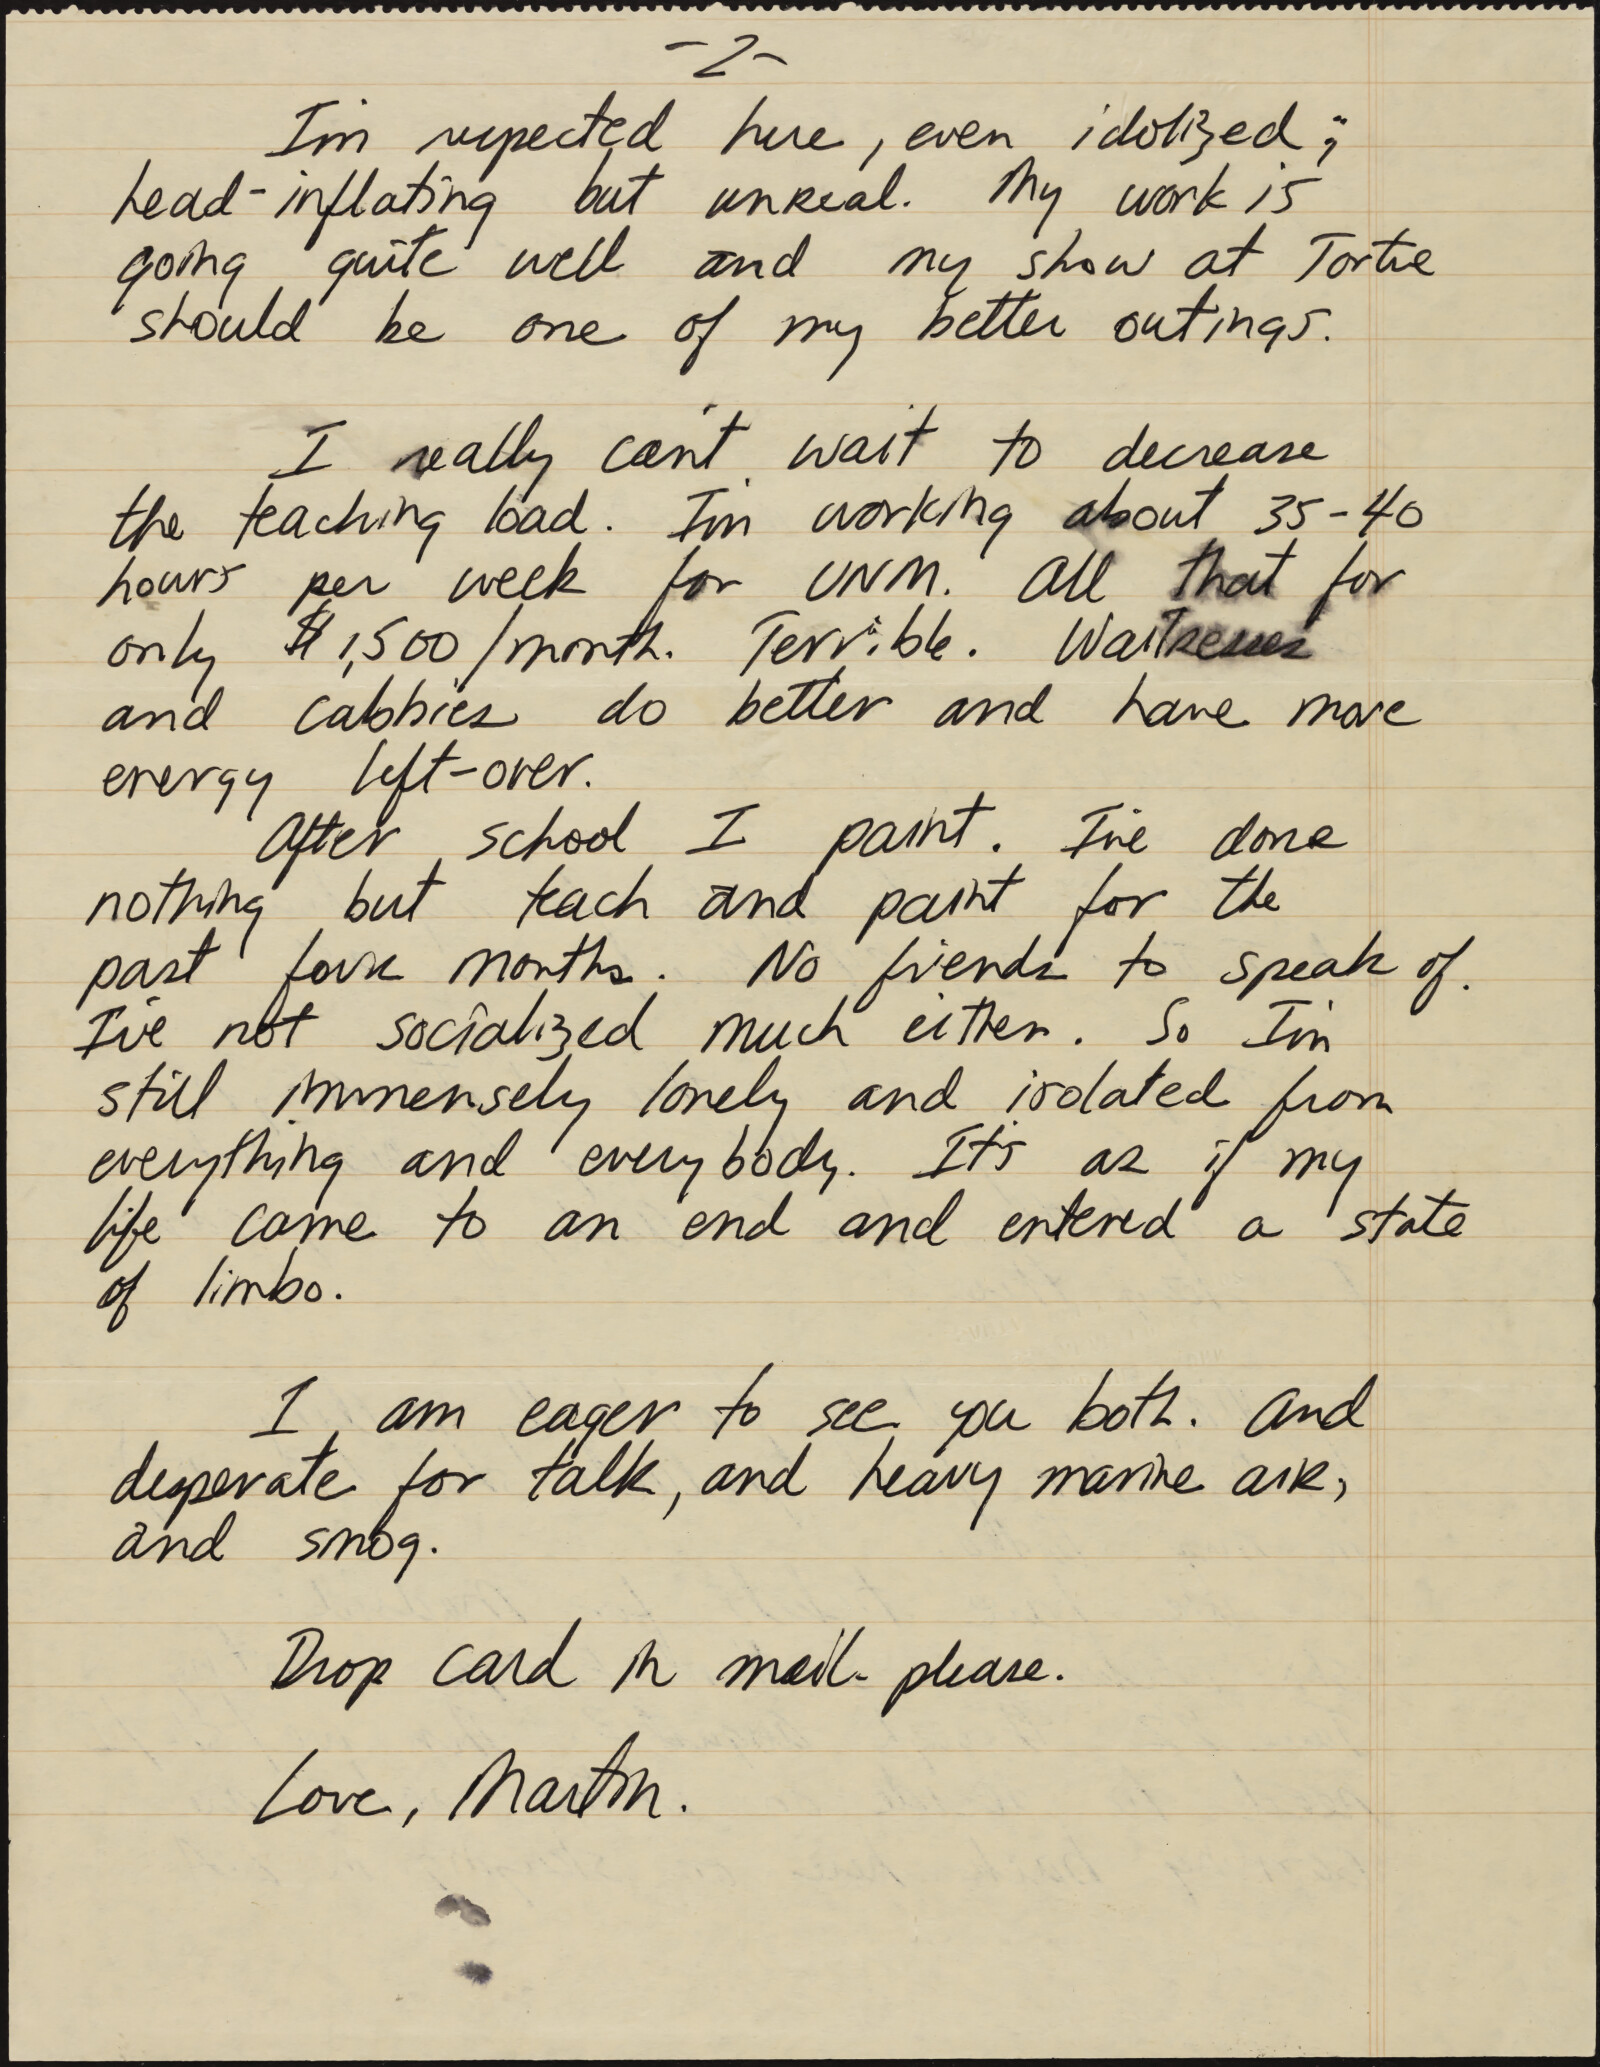 -2-
I'm respected here, even idolized;
head-inflating but unreal. My work is
going quite well and my show at Tortue
should be one of my better outings.
I really can't wait to decrease
the teaching load. I'm working about 35-40
hours per week for UNM. All that for
only $1,500/month. Terrible. Waitresses
and cabbies do better and have more
energy left-over.
After school I paint. I've done
nothing but teach and paint for the
past four months. No friends to speak of.
I've not socialized much either. So I'm
still immensely lonely and isolated from
everything and everybody. It's as if my
life came to an end and entered a state
of limbo.
I am eager to see you both. And
desperate for talk, and heavy marine air,
and smog.
Drop card in mail - please.
Love, Martin.